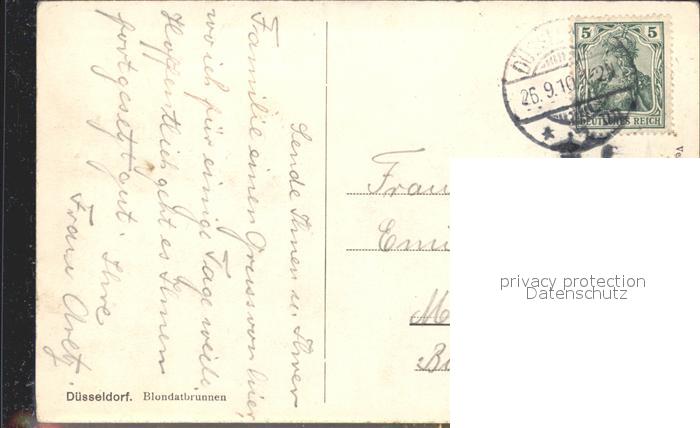 Sende Ihnen u. Ihrer
Familie einen Gruss von hier,
wo ich für einige Tage weile.
Hoffentlich geht es Ihnen
fortgesetzt gut. Ihre
Frau Aretz.
Düsseldorf. Blondatbrunnen
5 5
DEUTSCHES REICH
26.9.10
Frau
Emi
M
privacy protection
Datenschutz